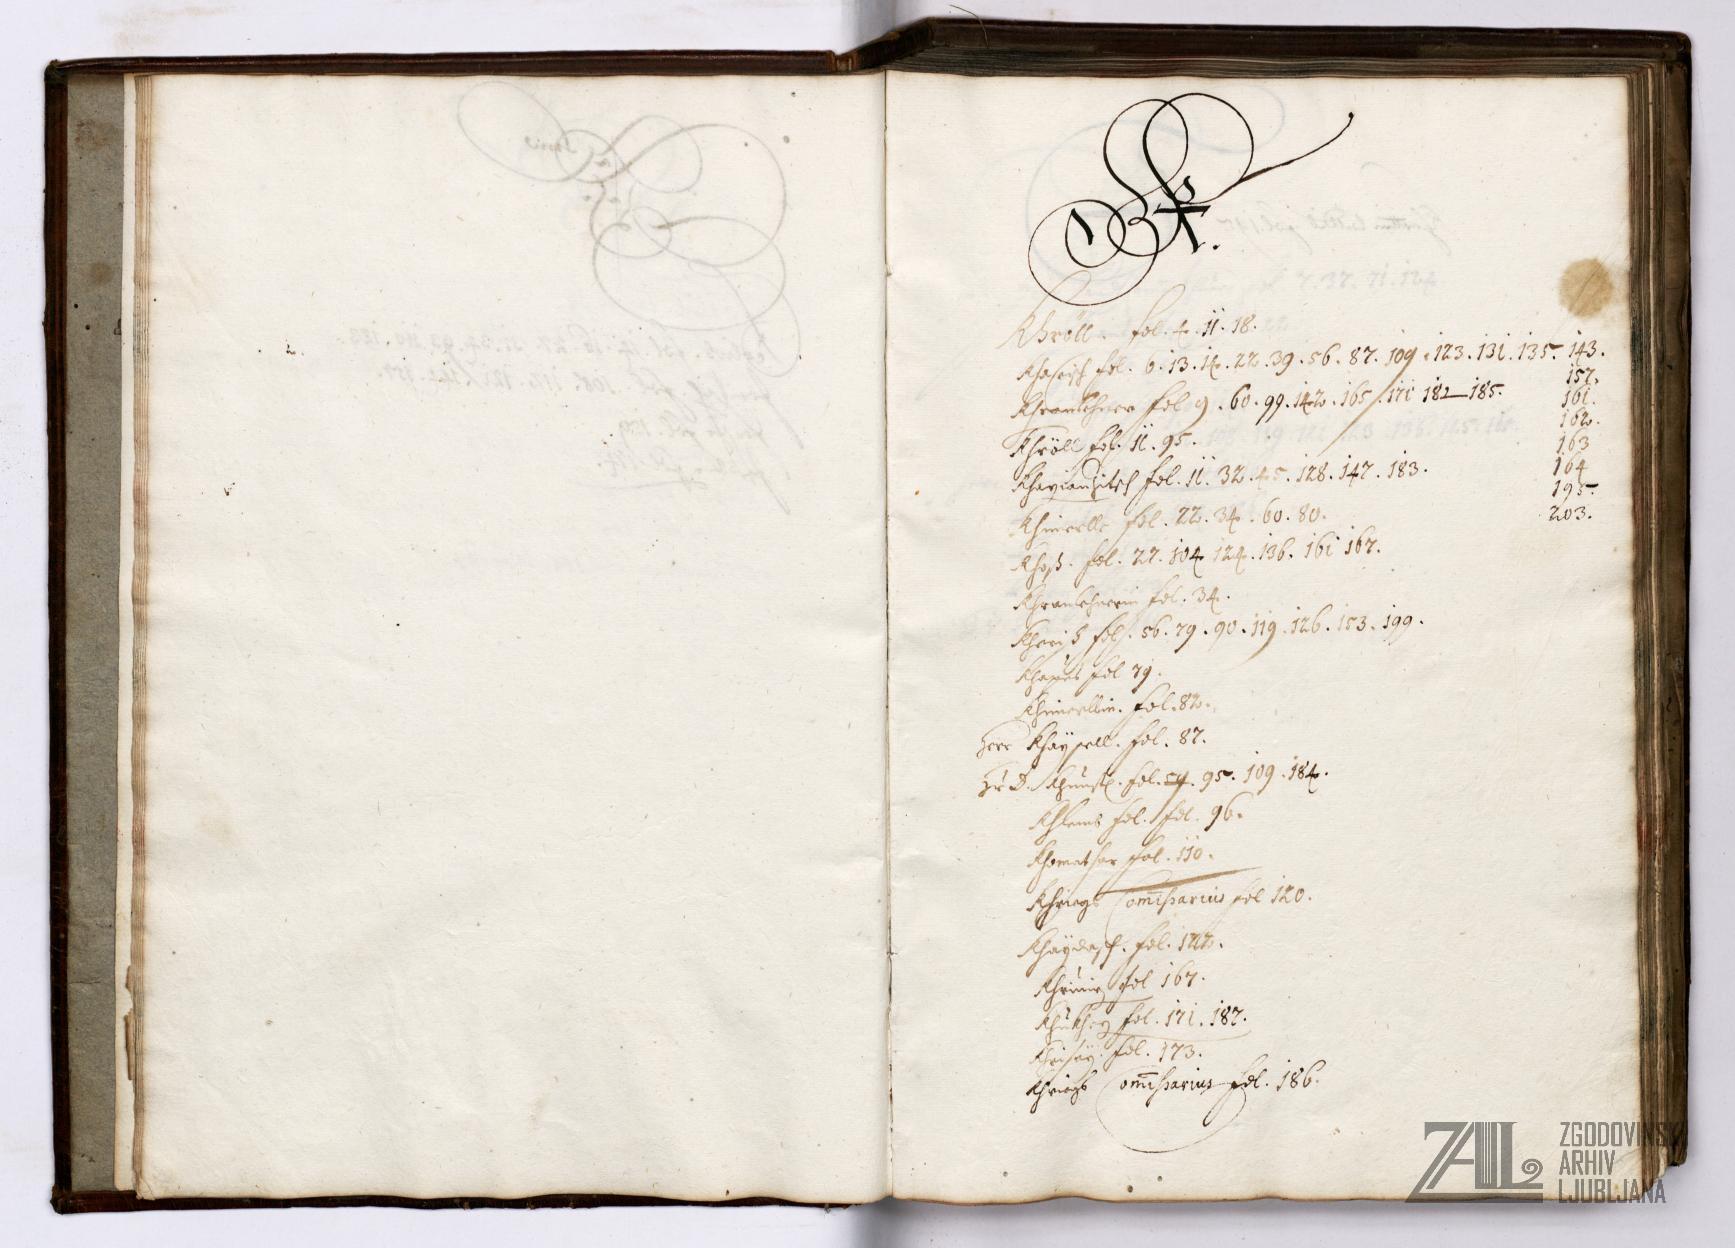 K.
Khröll. fol. 4. 11. 18.
Khasisch fol. 6. 13. 14. 22. 39. 56. 87. 109. 123. 131. 135. 143.
157.
Khranlehner fol. 9. 60. 99. 142. 165. 171 182 185.
161.
162.
Khröll fol. 11. 95.
163
Khavianzitsch fol. 11. 32. 45. 128. 147. 183.
164
195.
Khimerlle fol. 22. 34. 60. 80.
203.
Khoß. fol. 27. 104 124. 136. 161 167.
Khranlehnerin fol. 34.
fol. 56. 79. 90. 119. 126. 153. 199.
fol 79.
Khimerllin. fol. 82.
Herr Khaÿsell. fol. 87.
Hr D. fol. 95. 109. 184.
Khlemb fol. fol. 96.
Khomathar fol. 110.
Khriegs Com̄issarius fol 120.
fol. 122.
fol 167.
fol. 171. 187.
fol. 173.
Khriegs Com̄issarius fol. 186.
ZAL ZGODOVINSKI
ARHIV
LJUBLJANA